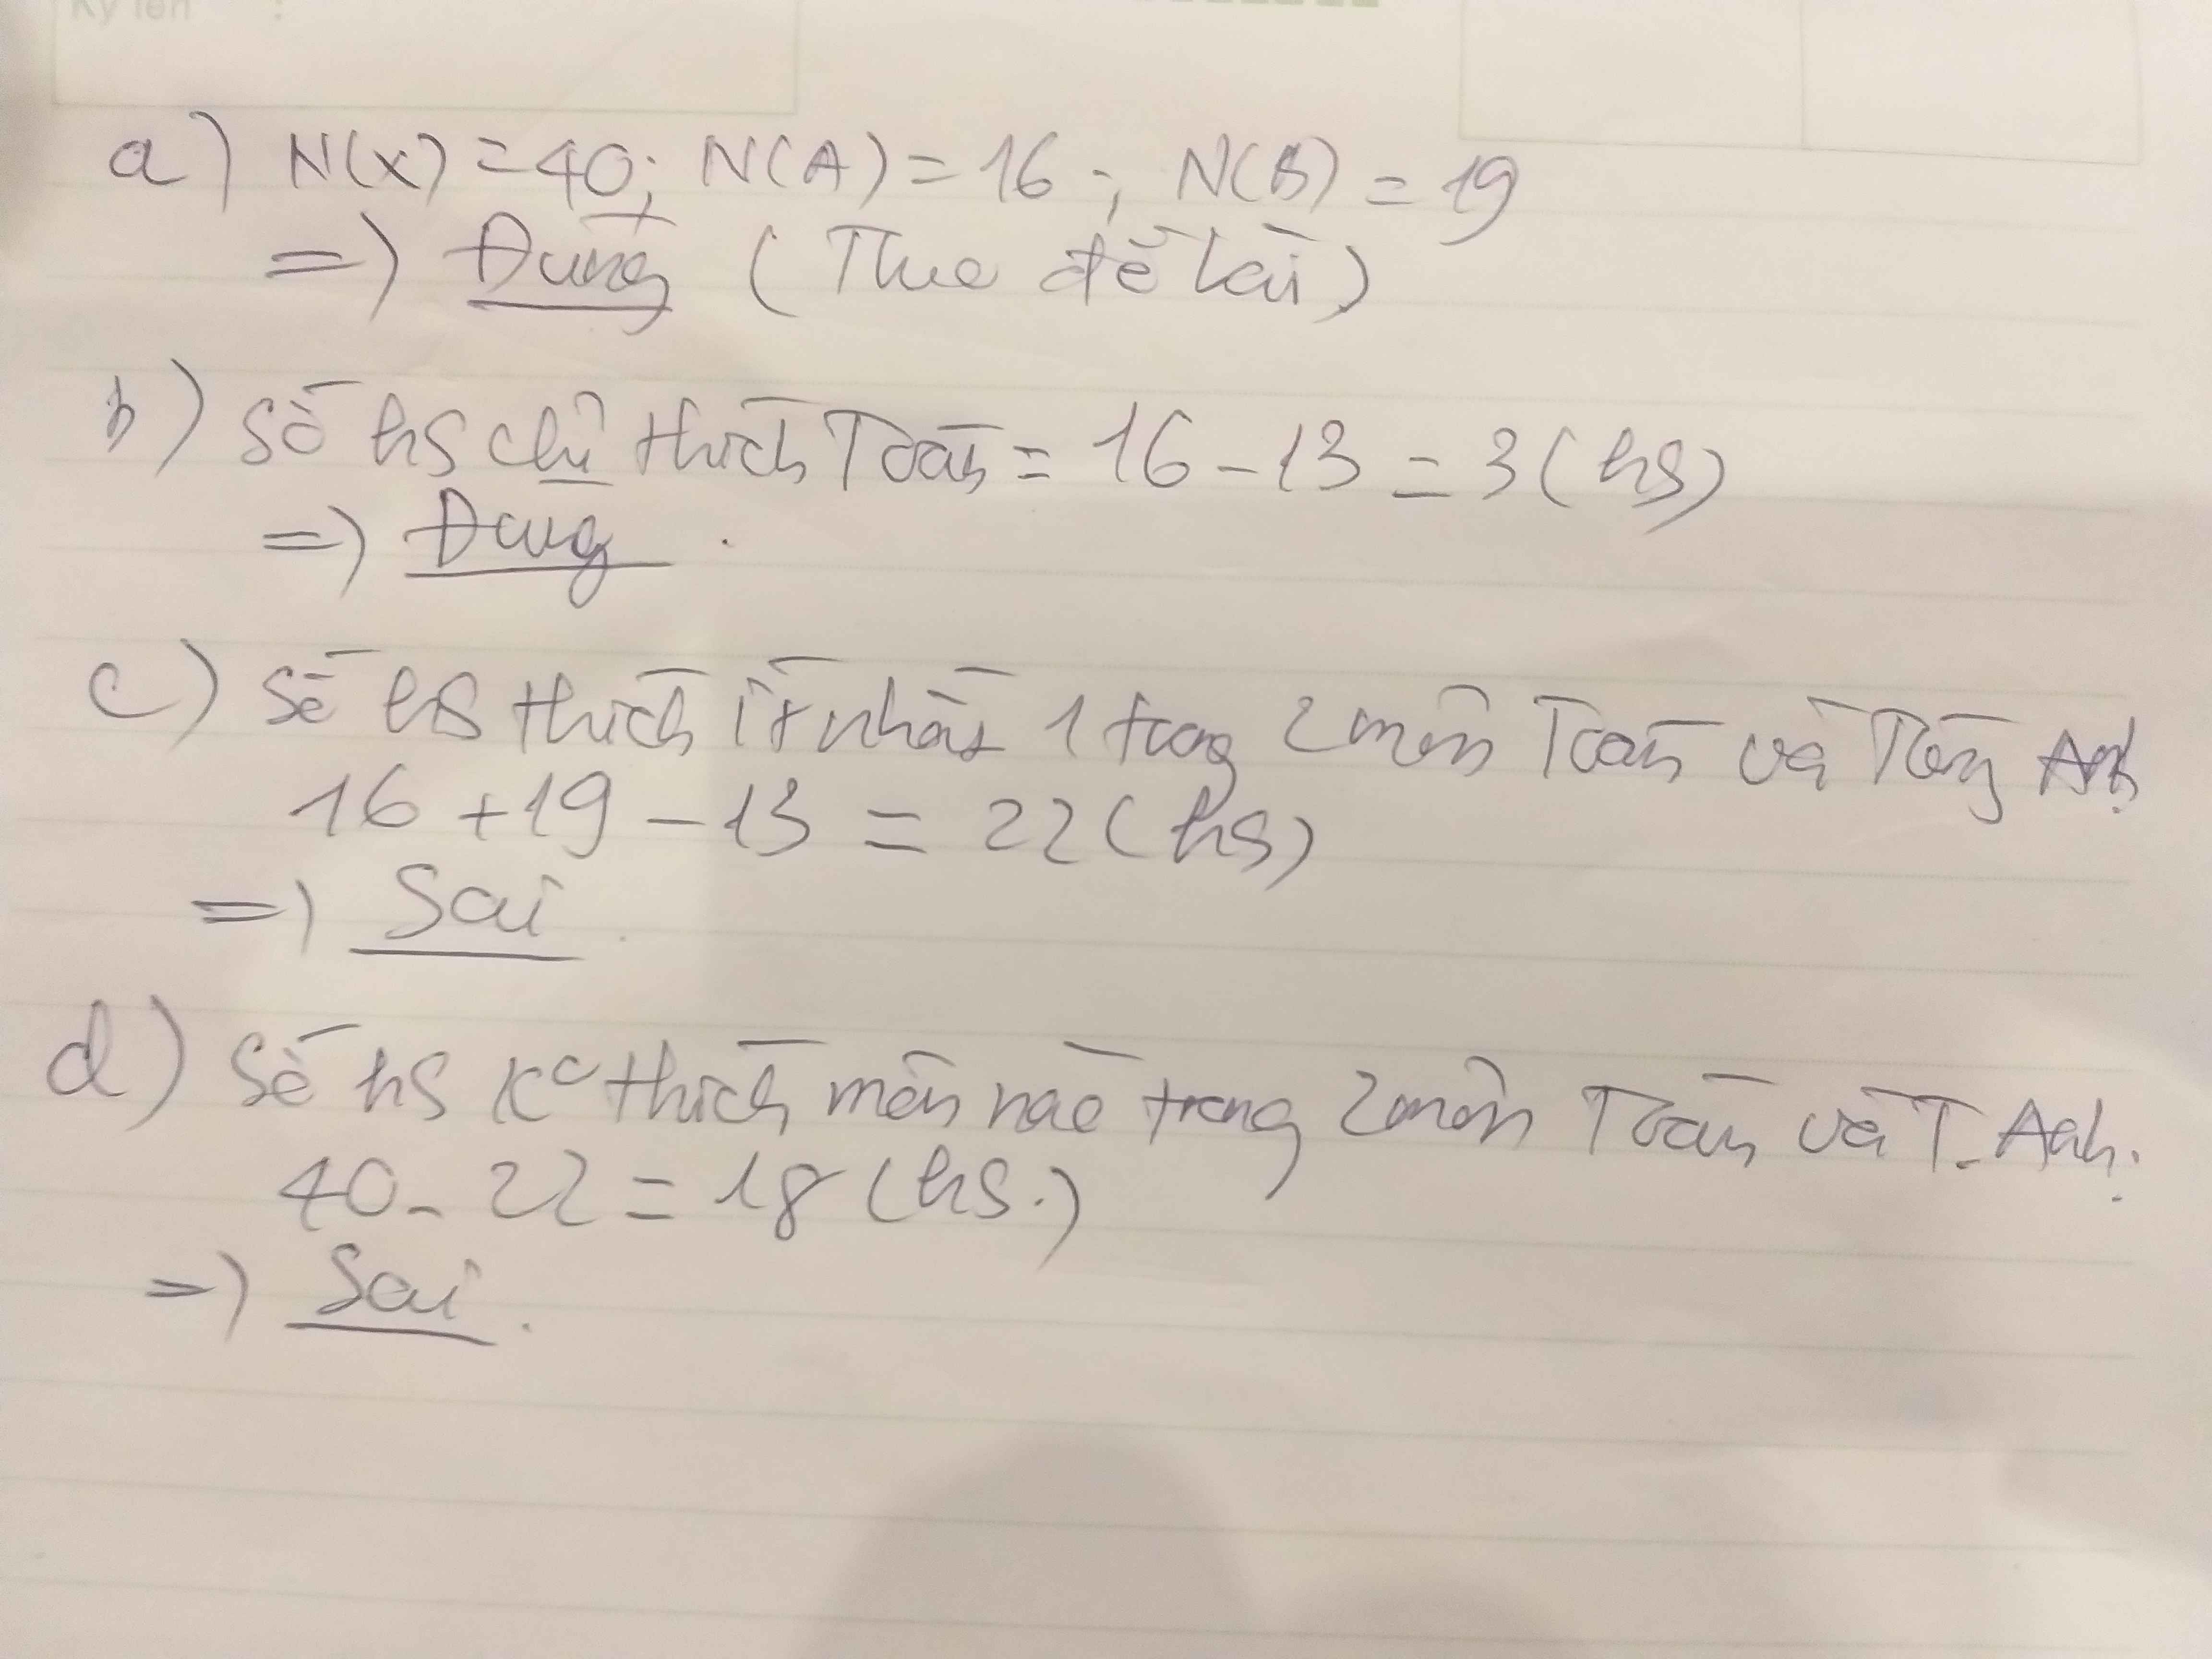 Ký tên :
a) N(X) = 40; N(A) = 16; N(B) = 19
=) Đúng (Theo đề bài)
b) Số hs chỉ thích Toán = 16 - 13 = 3 (hs)
=) Đúng.
c) Số hs thích ít nhất 1 trong 2 môn Toán và Tiếng Anh.
16 + 19 - 13 = 22 (hs)
=) Sai.
d) Số hs k° thích môn nào trong 2 môn Toán và T. Anh.
40 - 22 = 18 (hs.)
=) Sai.